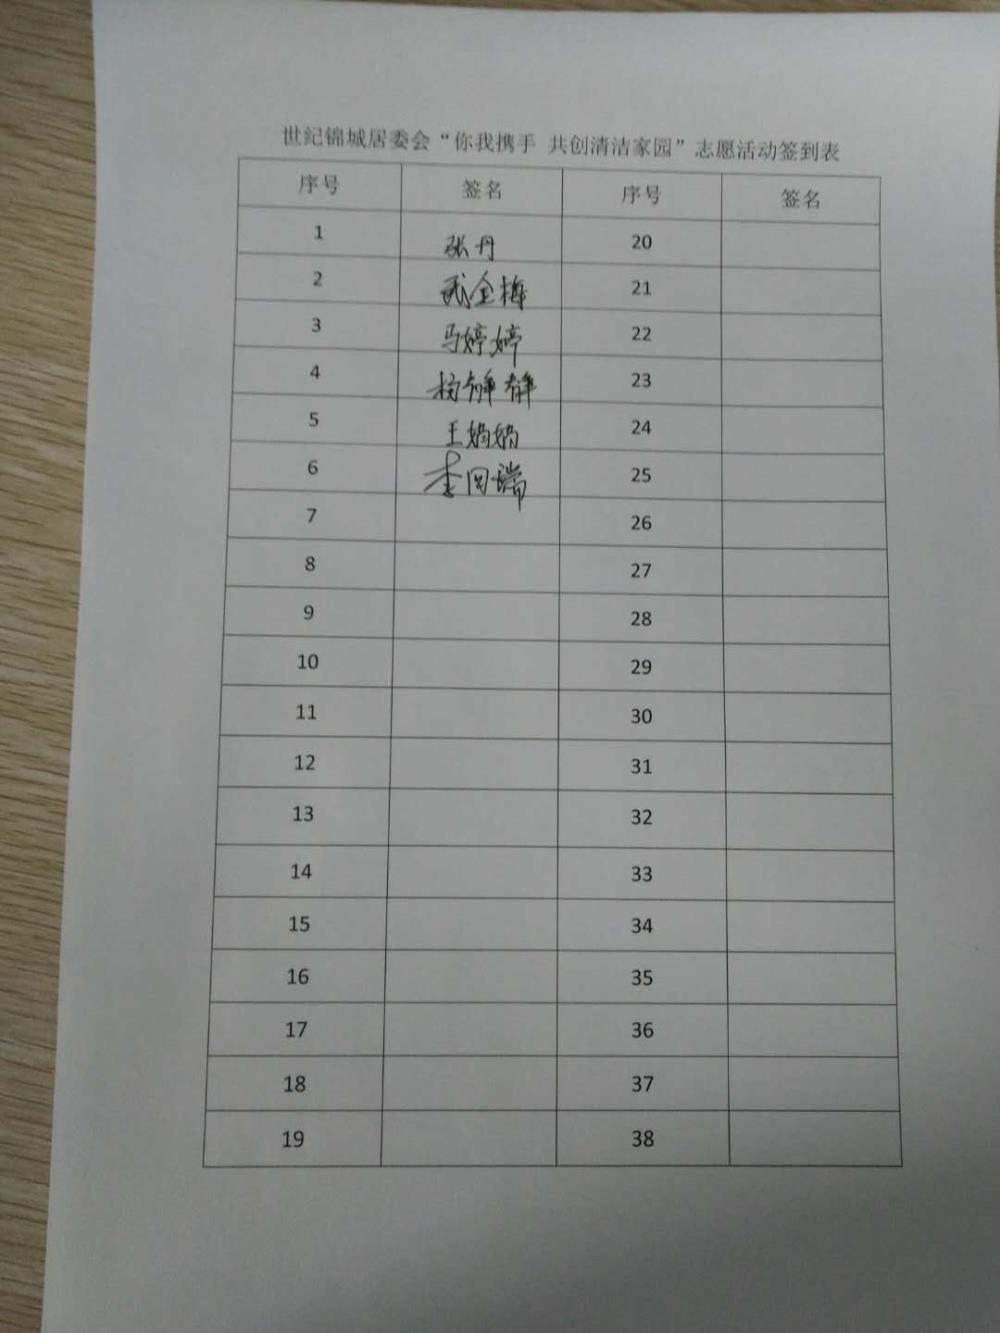 世纪锦城居委会“你我携手 共创清洁家园”志愿活动签到表
序号 签名 序号 签名
1 张丹 20
2 武金梅 21
3 马婷婷 22
4 杨静静 23
5 王娟娟 24
6 25
7 26
8 27
9 28
10 29
11 30
12 31
13 32
14 33
15 34
16 35
17 36
18 37
19 38